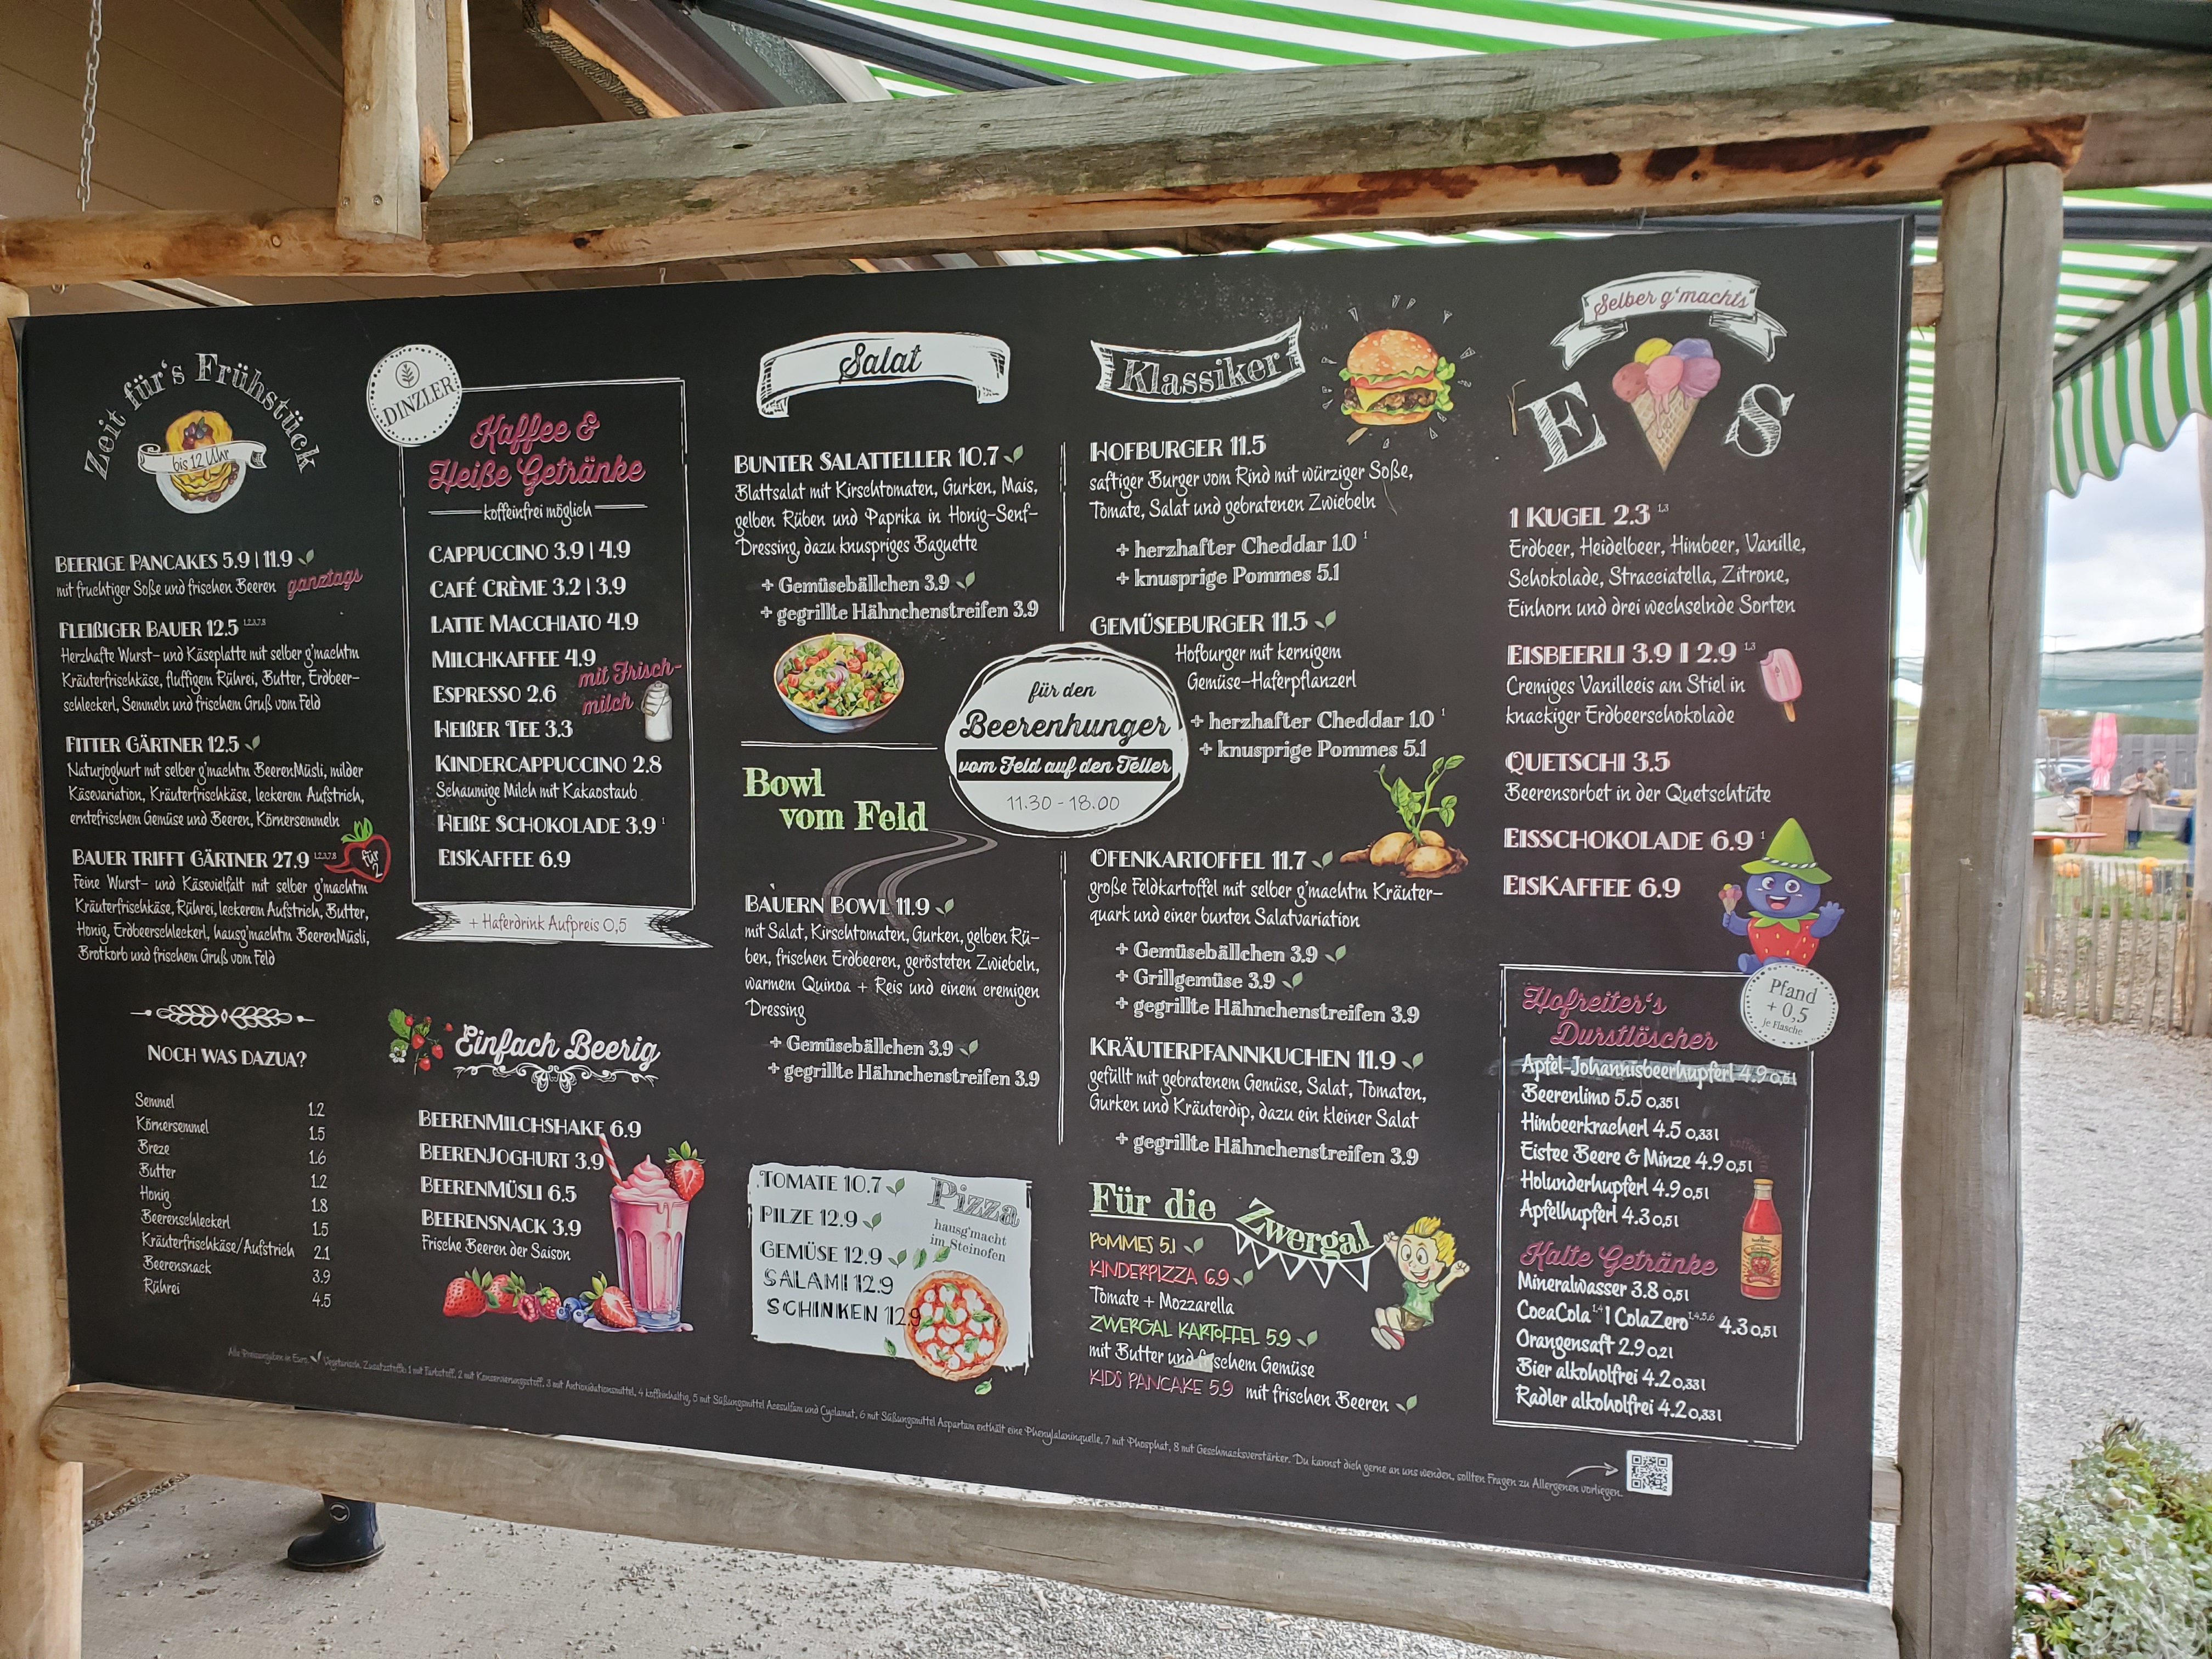 Zeit für's Frühstück
bis 12 Uhr
BEERIGE PANCAKES 5.9 | 11.9
mit fruchtiger Soße und frischen Beeren ganztags
FLEIßIGER BAUER 12.5 1,2,3,7,8
Herzhafte Wurst- und Käseplatte mit selber g'machtm
Kräuterfrischkäse, fluffigem Rührei, Butter, Erdbeer-
schleckerl, Semmeln und frischem Gruß vom Feld
FITTER GÄRTNER 12.5
Naturjoghurt mit selber g'machtm BeerenMüsli, milder
Käsevariation, Kräuterfrischkäse, leckerem Aufstrich,
erntefrischem Gemüse und Beeren, Körnersemmeln
BAUER TRIFFT GÄRTNER 27.9 1,2,3,7,8
für
2
Feine Wurst- und Käsevielfalt mit selber g'machtm
Kräuterfrischkäse, Rührei, leckerem Aufstrich, Butter,
Honig, Erdbeerschleckerl, hausg'machtm BeerenMüsli,
Brotkorb und frischem Gruß vom Feld
NOCH WAS DAZUA?
Semmel 1.2
Körnersemmel 1.5
Breze 1.6
Butter 1.2
Honig 1.8
Beerenschleckerl 1.5
Kräuterfrischkäse/Aufstrich 2.1
Beerensnack 3.9
Rührei 4.5
DINZLER
Kaffee &
Heiße Getränke
koffeinfrei möglich
CAPPUCCINO 3.9 | 4.9
CAFÉ CRÈME 3.2 | 3.9
LATTE MACCHIATO 4.9
MILCHKAFFEE 4.9
mit Frisch-
milch
ESPRESSO 2.6
HEIßER TEE 3.3
KINDERCAPPUCCINO 2.8
Schaumige Milch mit Kakaostaub
HEIßE SCHOKOLADE 3.9 1
EISKAFFEE 6.9
+ Haferdrink Aufpreis 0,5
Einfach Beerig
BEERENMILCHSHAKE 6.9
BEERENJOGHURT 3.9
BEERENMÜSLI 6.5
BEERENSNACK 3.9
Frische Beeren der Saison
Salat
BUNTER SALATTELLER 10.7
Blattsalat mit Kirschtomaten, Gurken, Mais,
gelben Rüben und Paprika in Honig-Senf-
Dressing, dazu knuspriges Baguette
+ Gemüsebällchen 3.9
+ gegrillte Hähnchenstreifen 3.9
Bowl
vom Feld
BAUERN BOWL 11.9
mit Salat, Kirschtomaten, Gurken, gelben Rü-
ben, frischen Erdbeeren, gerösteten Zwiebeln,
warmem Quinoa + Reis und einem cremigen
Dressing
+ Gemüsebällchen 3.9
+ gegrillte Hähnchenstreifen 3.9
Pizza
hausg'macht
im Steinofen
TOMATE 10.7
PILZE 12.9
GEMÜSE 12.9
SALAMI 12.9
SCHINKEN 12.9
für den
Beerenhunger
vom Feld auf den Teller
11.30 - 18.00
Klassiker
HOFBURGER 11.5
saftiger Burger vom Rind mit würziger Soße,
Tomate, Salat und gebratenen Zwiebeln
+ herzhafter Cheddar 1.0 1
+ knusprige Pommes 5.1
GEMÜSEBURGER 11.5
Hofburger mit kernigem
Gemüse-Haferpflanzerl
+ herzhafter Cheddar 1.0 1
+ knusprige Pommes 5.1
OFENKARTOFFEL 11.7
große Feldkartoffel mit selber g'machtm Kräuter-
quark und einer bunten Salatvariation
+ Gemüsebällchen 3.9
+ Grillgemüse 3.9
+ gegrillte Hähnchenstreifen 3.9
KRÄUTERPFANNKUCHEN 11.9
gefüllt mit gebratenem Gemüse, Salat, Tomaten,
Gurken und Kräuterdip, dazu ein kleiner Salat
+ gegrillte Hähnchenstreifen 3.9
Für die Zwergal
POMMES 5.1
KINDERPIZZA 6.9
Tomate + Mozzarella
ZWERGAL KARTOFFEL 5.9
mit Butter und frischem Gemüse
KIDS PANCAKE 5.9 mit frischen Beeren
Selber g'machts
E S
1 KUGEL 2.3 1,3
Erdbeer, Heidelbeer, Himbeer, Vanille,
Schokolade, Stracciatella, Zitrone,
Einhorn und drei wechselnde Sorten
EISBEERLI 3.9 | 2.9 1,3
Cremiges Vanilleeis am Stiel in
knackiger Erdbeerschokolade
QUETSCHI 3.5
Beerensorbet in der Quetschtüte
EISSCHOKOLADE 6.9 1
EISKAFFEE 6.9
Pfand
+ 0,5
je Flasche
Hofreiter's
Durstlöscher
Apfel-Johannisbeerhupferl 4.9 0,5l
Beerenlimo 5.5 0,35l
Himbeerkracherl 4.5 0,33l
Eistee Beere & Minze 4.9 0,5l
Holunderhupferl 4.9 0,5l
Apfelhupferl 4.3 0,5l
Kalte Getränke
Mineralwasser 3.8 0,5l
CocaCola 1,4 | ColaZero 1,4,5,6 4.3 0,5l
Orangensaft 2.9 0,2l
Bier alkoholfrei 4.2 0,33l
Radler alkoholfrei 4.2 0,33l
Alle Preisangaben in Euro. Vegetarisch. Zusatzstoffe: 1 mit Farbstoff, 2 mit Konservierungsstoff, 3 mit Antioxidationsmittel, 4 koffeinhaltig, 5 mit Süßungsmittel Acesulfam und Cyclamat, 6 mit Süßungsmittel Aspartam enthält eine Phenylalaninquelle, 7 mit Phosphat, 8 mit Geschmacksverstärker. Du kannst dich gerne an uns wenden, sollten Fragen zu Allergenen vorliegen.